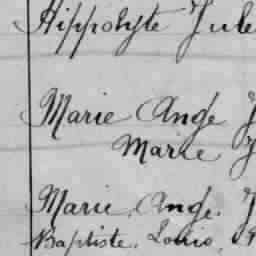 Hippolyte Jule
Marie Ange J
Marie J
Marie Ange. J
Baptiste. Louis.